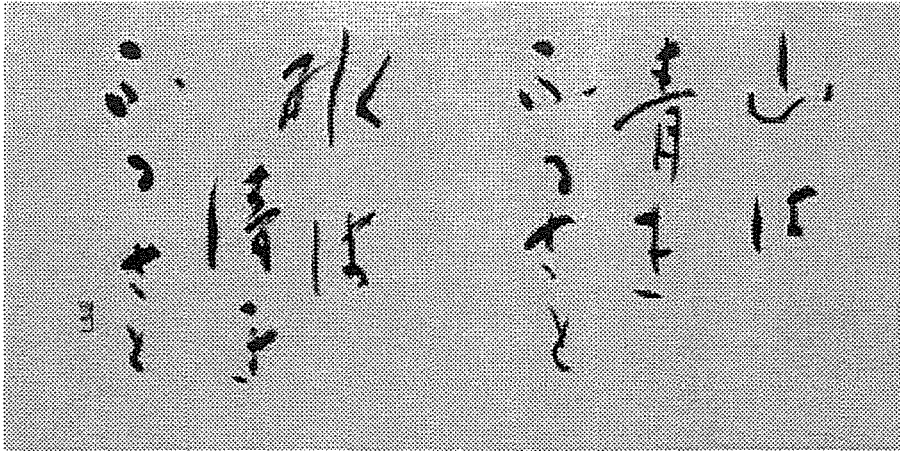 山は
青き
ふるさと
水は
清き
ふるさと